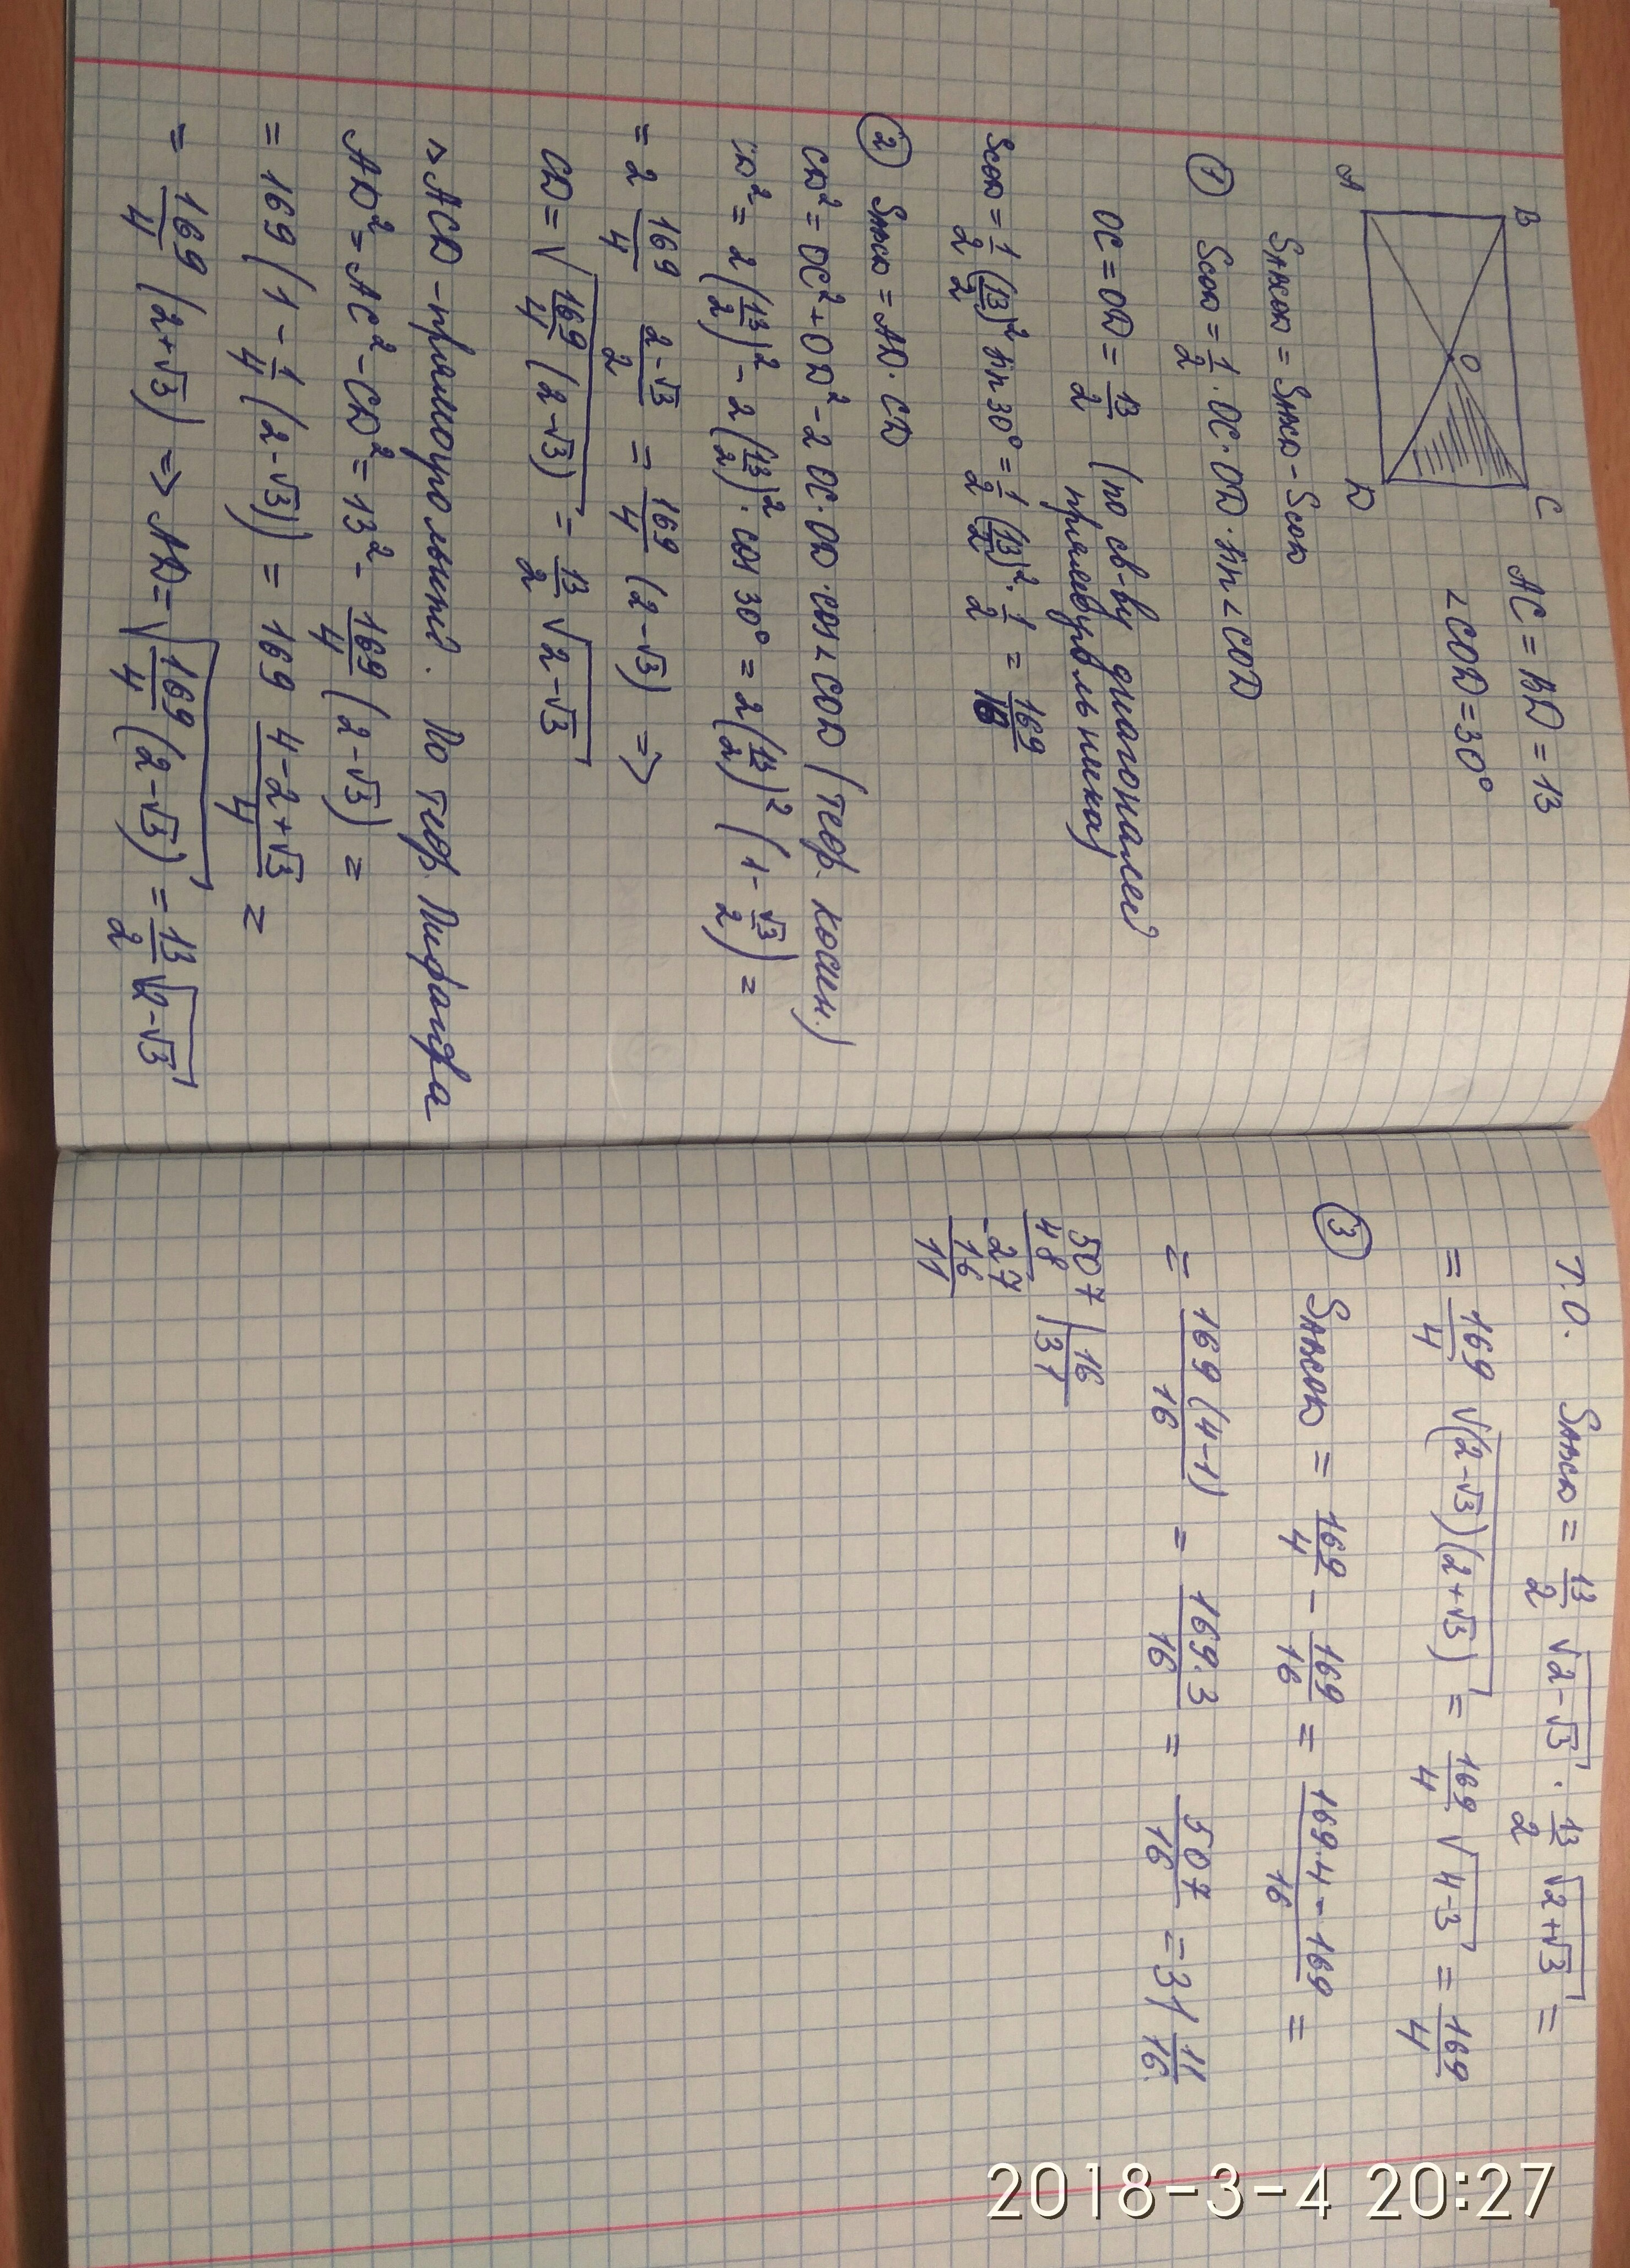 B C
A D
O
AC = BD = 13
∠COD = 30°
SABCOD = SABCD - SCOD
① SCOD = 1/2 · OC · OD · sin ∠COD
OC = OD = 13/2 (по св-ву диагоналей
прямоугольника)
SCOD = 1/2 (13/2)² sin 30° = 1/2 (13/2)² · 1/2 = 169/16
② SABCD = AD · CD
CD² = OC² + OD² - 2 OC · OD · cos ∠COD (теор. косин.)
CD² = 2(13/2)² - 2(13/2)² · cos 30° = 2(13/2)² (1 - √3/2) =
= 2 169/4 2-√3/2 = 169/4 (2-√3) =>
CD = √(169/4 (2-√3)) = 13/2 √(2-√3)
▷ ACD - прямоугольный. По теор. Пифагора
AD² = AC² - CD² = 13² - 169/4 (2-√3) =
= 169 (1 - 1/4 (2-√3)) = 169 4-2+√3/4 =
= 169/4 (2+√3) => AD = √(169/4 (2-√3)) = 13/2 √(2-√3)
Т.О. SABCD = 13/2 √(2-√3) · 13/2 √(2+√3) =
= 169/4 √((2-√3)(2+√3)) = 169/4 √(4-3) = 169/4
③ SABCOD = 169/4 - 169/16 = 169·4 - 169/16 =
= 169(4-1)/16 = 169·3/16 = 507/16 = 31 11/16
507 | 16
48 | 31
-27
16
11
2018-3-4 20:27